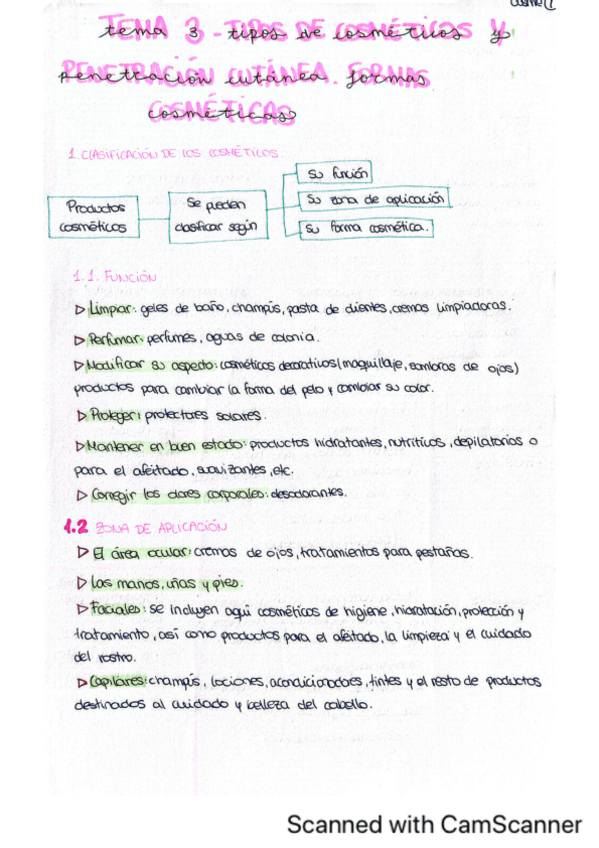 TEMA 3 - TIPOS DE COSMÉTICOS Y
PENETRACIÓN CUTÁNEA. FORMAS
COSMÉTICAS
1. CLASIFICACIÓN DE LOS COSMÉTICOS.
Productos cosméticos
Se pueden clasificar según
Su función
Su zona de aplicación
Su forma cosmética.
1.1. FUNCIÓN
▷ Limpiar: geles de baño, champús, pasta de dientes, cremas limpiadoras.
▷ Perfumar: perfumes, aguas de colonia.
▷ Modificar su aspecto: cosméticos decorativos (maquillaje, sombras de ojos)
productos para cambiar la forma del pelo y cambiar su color.
▷ Proteger: protectores solares.
▷ Mantener en buen estado: productos hidratantes, nutritivos, depilatorios o
para el afeitado, suavizantes, etc.
▷ Corregir los olores corporales: desodorantes.
1.2 ZONA DE APLICACIÓN
▷ El área ocular: cremas de ojos, tratamientos para pestañas.
▷ Las manos, uñas y pies.
▷ Faciales: se incluyen aquí cosméticos de higiene, hidratación, protección y
tratamiento, así como productos para el afeitado, la limpieza y el cuidado
del rostro.
▷ Capilares: champús, lociones, acondicionadores, tintes y el resto de productos
destinados al cuidado y belleza del cabello.
Scanned with CamScanner